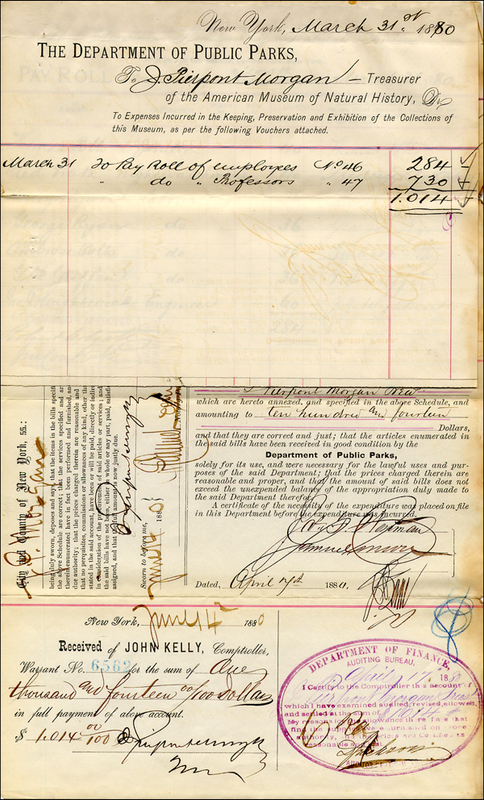 New York, March 31st 1880
THE DEPARTMENT OF PUBLIC PARKS,
To J. Pierpont Morgan — Treasurer
of the American Museum of Natural History, Dr
To Expenses Incurred in the Keeping, Preservation and Exhibition of the Collections
of this Museum, as per the following Vouchers attached.
March 31 To Pay Roll of employees No 46 284
" do " Professors " 47 730
1.014
City and County of New York, ss.:
being duly sworn, deposes and says that the items in the bills
the above Schedule are correct; that the services specified and
therein enumerated have in fact been performed and furnished,
due authority; that the prices charged therein are reasonable and
that no perquisites, commissions or allowances of any kind, other
stated in the said account, have been or will be paid, directly or
the said bills have not been, either in whole or any part, paid, satisfied
assigned, and that the full amount is now justly due.
Sworn to before me,
Pierpont Morgan
which are hereto annexed, and specified in the above Schedule, and
amounting to ten hundred and fourteen
Dollars,
and that they are correct and just; that the articles enumerated in
the said bills have been received in good condition by the
Department of Public Parks,
solely for its use, and were necessary for the lawful uses and pur-
poses of the said Department; that the prices charged therein are
reasonable and proper, and that the amount of said bills does not
exceed the unexpended balance of the appropriation duly made to
the said Department therefor.
A certificate of the necessity of the expenditure was placed on file
in this Department before the expenditure was incurred.
Dated, April 7th 1880.
New York, June 14th 1880
Received of JOHN KELLY, Comptroller,
Warrant No. 6562 for the sum of One
thousand and fourteen 00/100 Dollars
in full payment of above account.
$ 1.014 00/100 J Pierpont Morgan
DEPARTMENT OF FINANCE,
AUDITING BUREAU.
April 17 188
I Certify to the Comptroller this account of
which I have examined, audited, revised, allowed,
and settled at the sum of